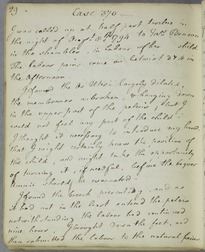 29
Case 370
I was called up at half past twelve in
the night of Sept. 8th 1794 to
in the shambles, in labour of her child
The labour pain came on betwixt & in
the afternoon.
I found the Os Uteri largely dilated,
the membranes unbroken, & hanging down
in the upper part of the pelvis, but I
could not feel any part of the child.
I thought it necessary to introduce my hand,
that I might certainly know the position of
the child, and might take the opportunity
of turning it, if needful, before the liquor
Amnii should be evacuated.
I found the breech presenting, and as
it had not in the least entered the pelvis
notwithstanding the labour had continued
nine hours, I brought down the feet, and
then submitted the labour to the natural pains